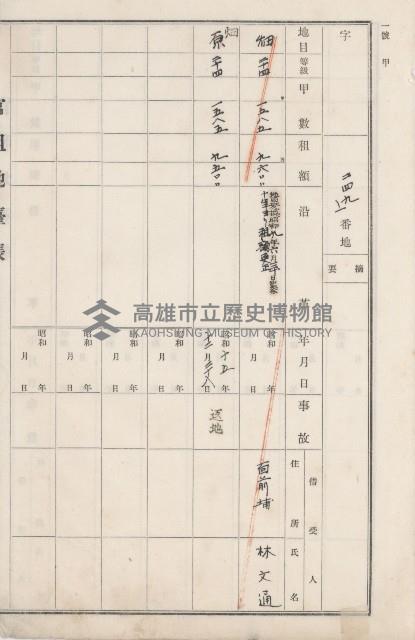 一號甲
字 二四九ノ一 番地
摘要
地目 等級 甲數 租額 沿革 年月日 事故 借受人 住所 氏名
畑 二四 一五八五 九六〇 昭和 年 月 日 面前埔 林文通
畑 原 二四 一五八五 九五〇 昭和 十五 年 十二月 二十八日 返地
昭和 年 月 日
昭和 年 月 日
昭和 年 月 日
昭和 年 月 日
官租地臺帳
高雄市立歷史博物館
KAOHSIUNG MUSEUM OF HISTORY